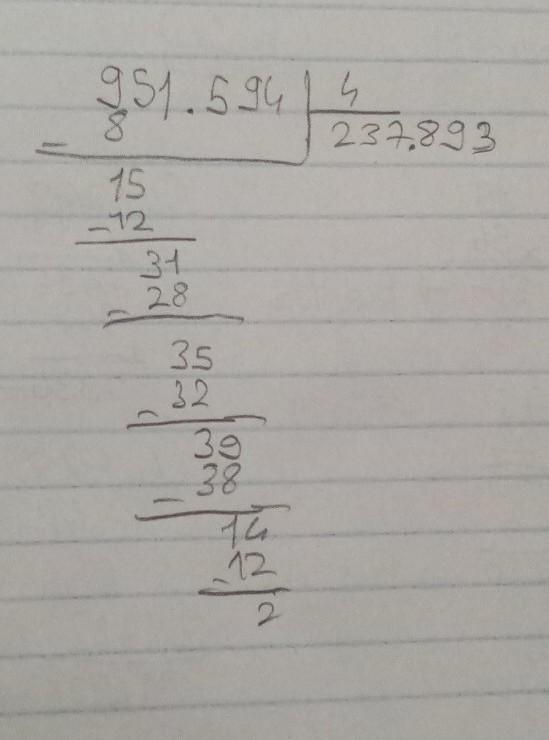 951.594 4
- 8 237.893
15
-12
31
- 28
35
- 32
39
- 38
14
-12
2